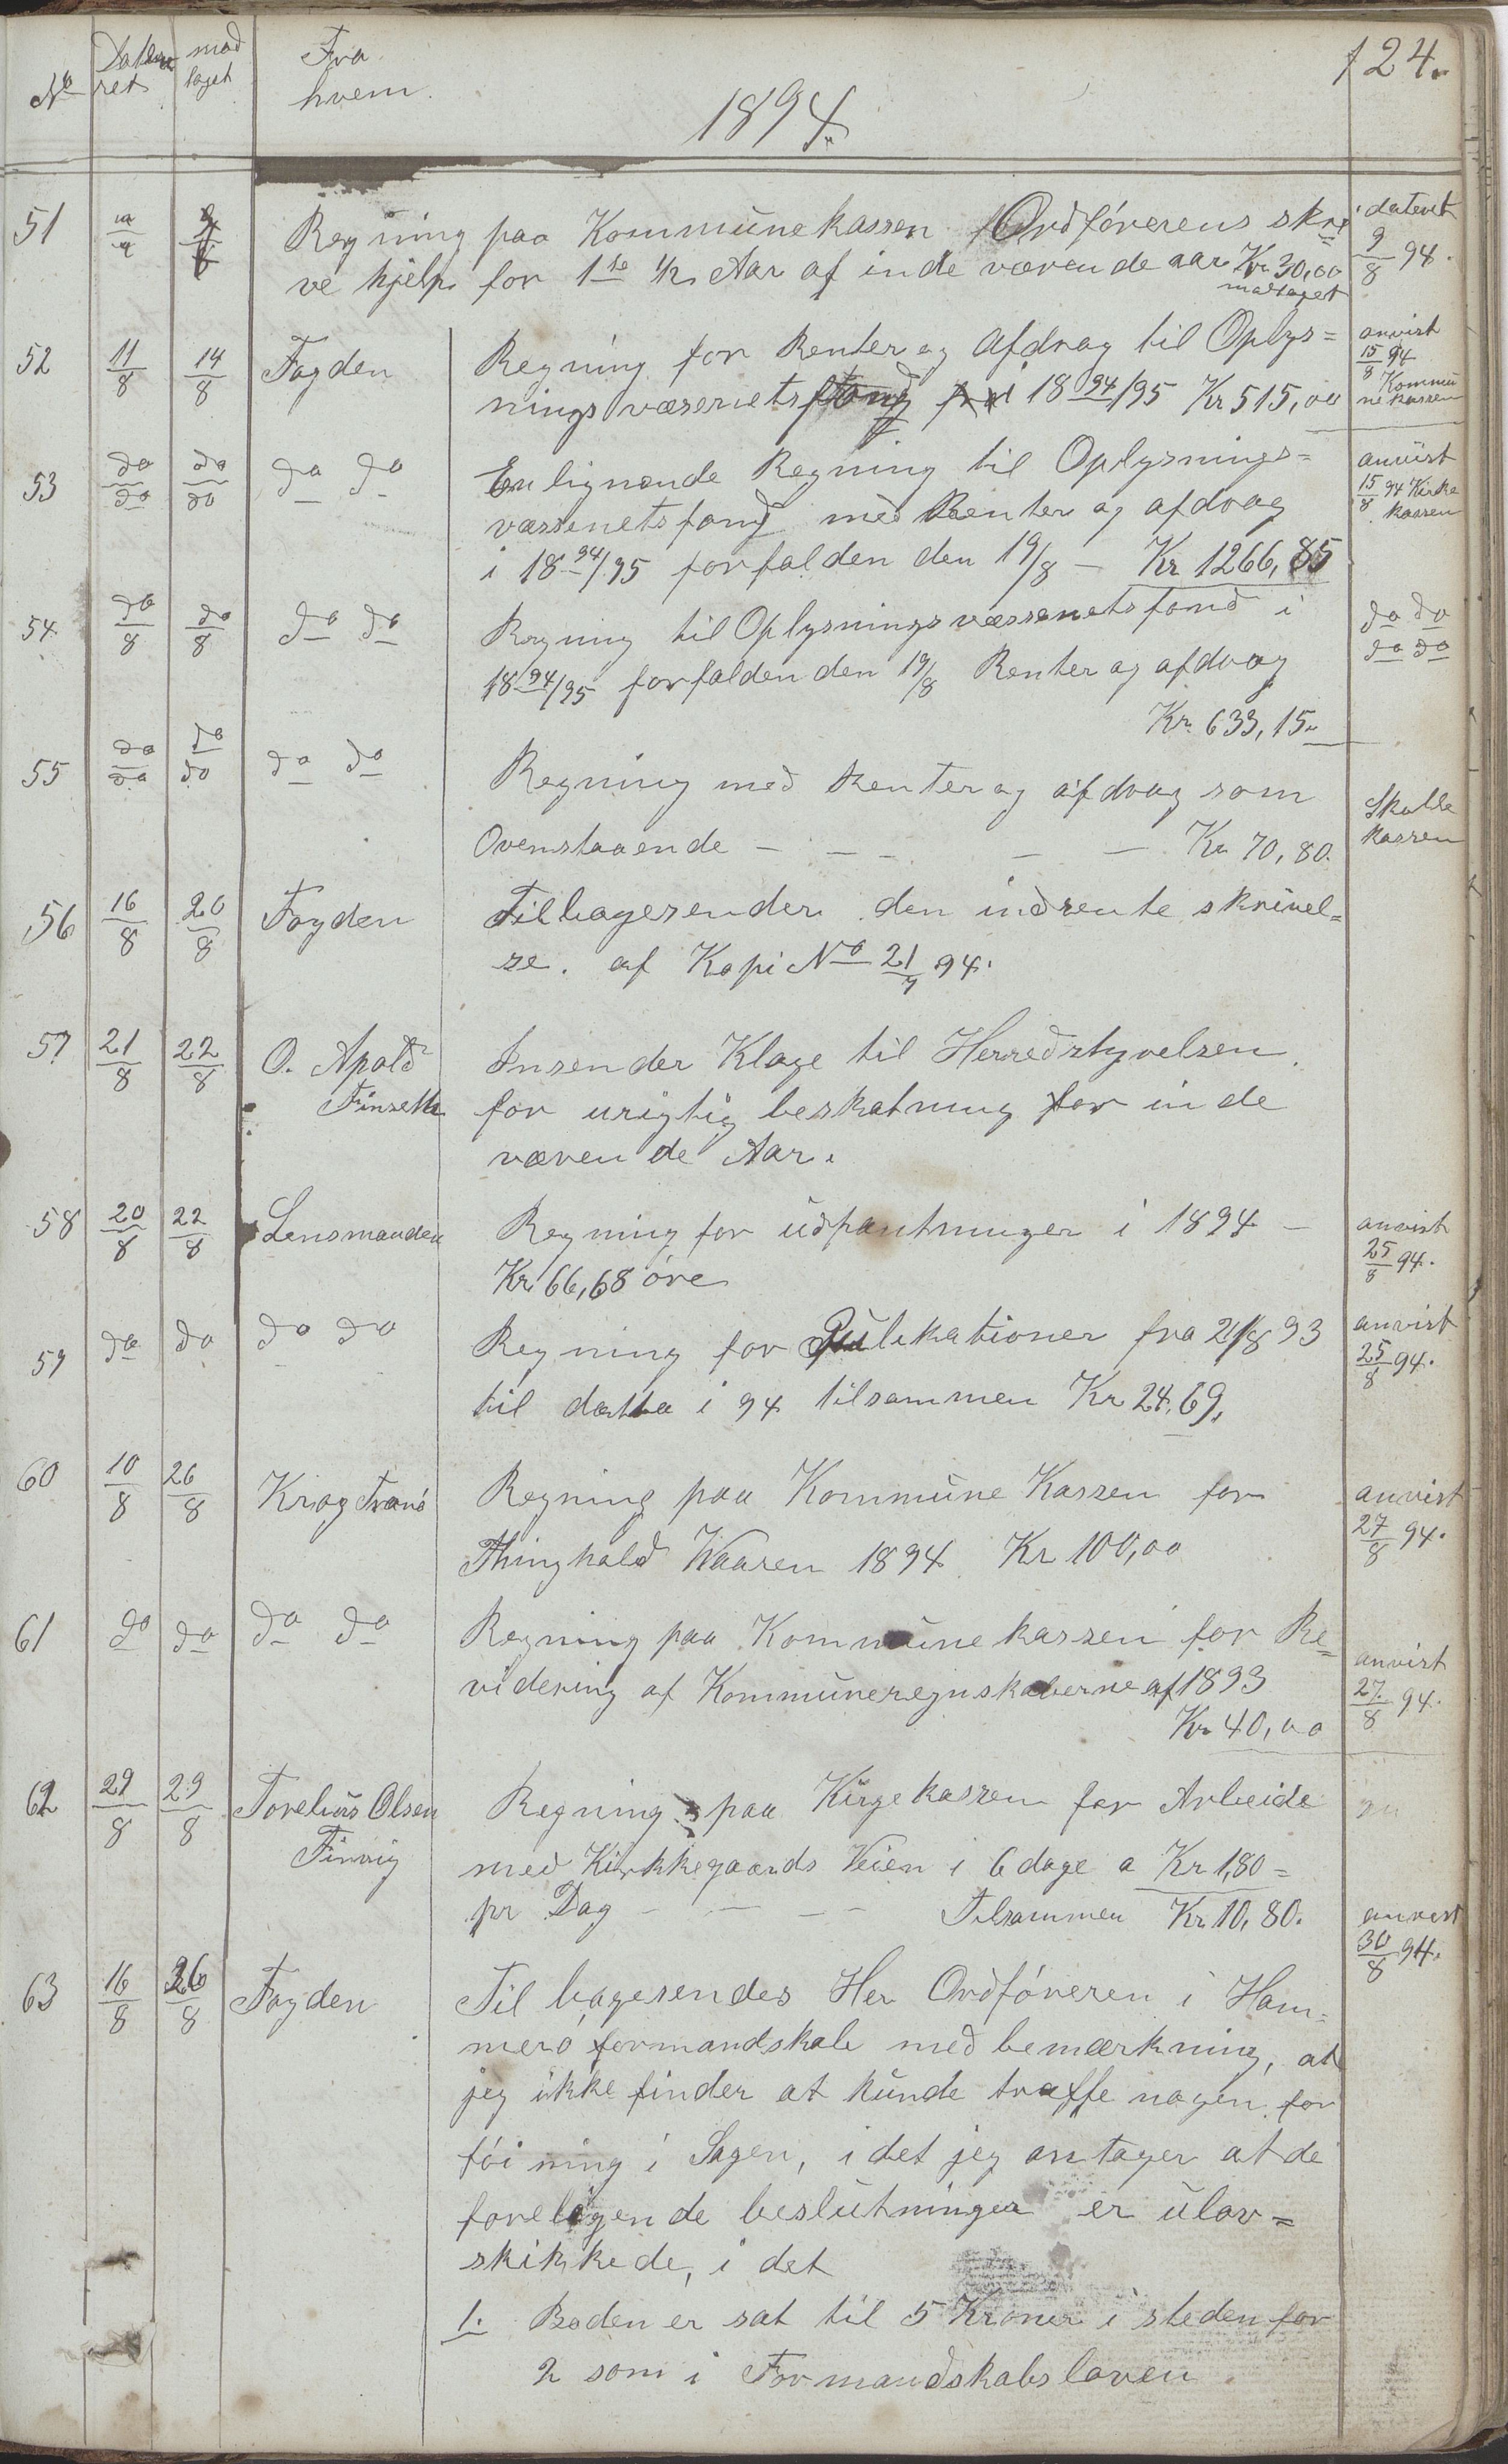 124.
No Date ret mod taget Fra hvem
1894.
51 Regning paa Kommunekassen Ordförerens skri datevet
ve hjelp for 1ste 1/2 Aar af inde værende aar Kr 30,00 9/8 94.
madtaget
52 11/8 14/8 Fogden Regning for Renter og Afdrag til Oplys= anvist
nings væsenets fond 18 94/95 Kr 515,00 15/8 94 Kommu
ne kassen
53 do/do do/do do do En lignende Regning til Oplysnings= anvist
væssenets fond med Renter og afdrag 15/8 94 Kirke
kassen
i 18 94/95 forfalden den 19/8 – Kr 1266,85
54 do/8 do/8 do do Regning til Oplysningsvæssenets fond i do do
18 94/95 forfalden den 19/8 Renter og afdrag do do
Kr. 633,15.
55 do/do do/do do do Regning med Renter og afdrag som Skolle
Ovenstaaende – – – – – Kr 70,80. kassen
56 16/8 20/8 Fogden Tilbagesender den indsente skrivel=
se. af Kopi No 21/7 94.
57 21/8 22/8 O. Apold Insender Klage til Herredstyvelsen
Finseth for urigtig beskatning for inde
værende Aar.
58 20/8 22/8 Lensmanden Regning for udpantninger i 1894 – anvist
Kr 66,68 öre 25/8 94.
59 do do do do Regning for Pulikationer fra 21/8 93 anvist
til datta i 94 tilsammen Kr 24,69. 25/8 94.
60 10/8 26/8 Krog Tranö Regning paa Kommune Kassen for anvist
Thinghold Vaaren 1894 Kr 100,00 27/8 94.
61 do do do do Regning paa Kommune kassen for Re=
videring af Kommuneregnskaberne af 1893 anvist
Kr 40,00 27/8 94.
62 29/8 29/8 Torelius Olsen Regning paa Kirgekassen for Arbeide
Finvig med Kirkkegaards Veien i 6 dage a Kr 1,80 =
pr Dag – – – – Tilsammen Kr 10,80. anvist
30/8 94.
63 16/8 26/8 Fogden Tilbagesendes Her Ordföreren i Ham=
merö formandskab med bemærkning, at
jeg ikke finder at kunde træffe nogen for
föining i Sagen, i det jeg antager at de
foreligende beslutninger er ulov=
skikkede, i det
1. Boden er sat til 5 Kroner i steden for
2 som i Formandskabsloven